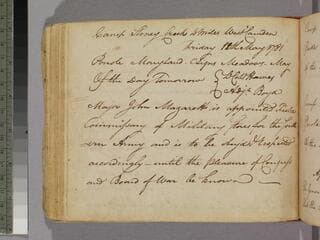 Camp Stoney Creek 2 Miles West Camden
Friday 18th May 1781
Parole Maryland. C. Signs Meadows. May
Of the Day Tomorrow { Lt Col Hawes
Adjt.
Major John Mazarett is appointed
Commissary of Military Stores for the South
ern Army and is to be Obeyd & respected
accordingly — until the pleasure of Congress
and Board of War be known —